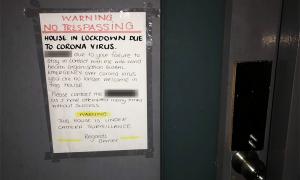 WARNING
NO TRESPASSING
HOUSE IN LOCKDOWN DUE
TO CORONA VIRUS.
due to your failure to
stay in contact with me with world
health organisation Global
EMERGENCY over corona virus
you are no longer welcome in
this house.
Please contact me
as I have attempted many times
without success.
WARNING
THIS HOUSE IS UNDER
CAMERA SURVEILLANCE
Regards
Owner